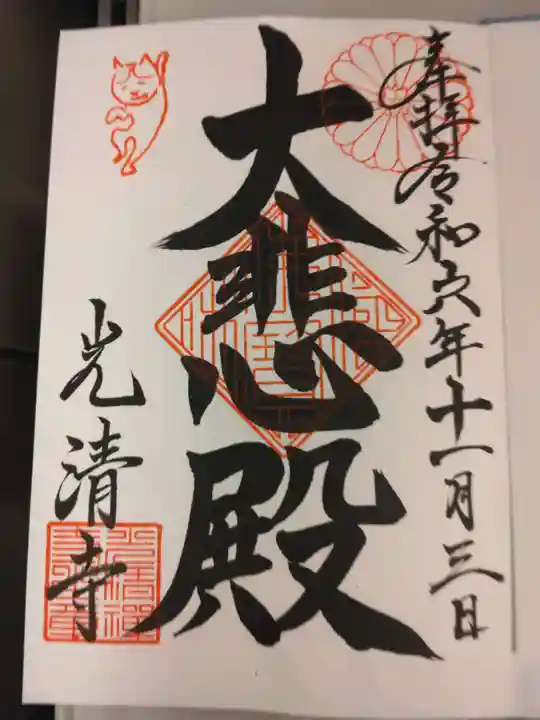 奉拝 令和六年十一月三日
大悲殿
光清寺